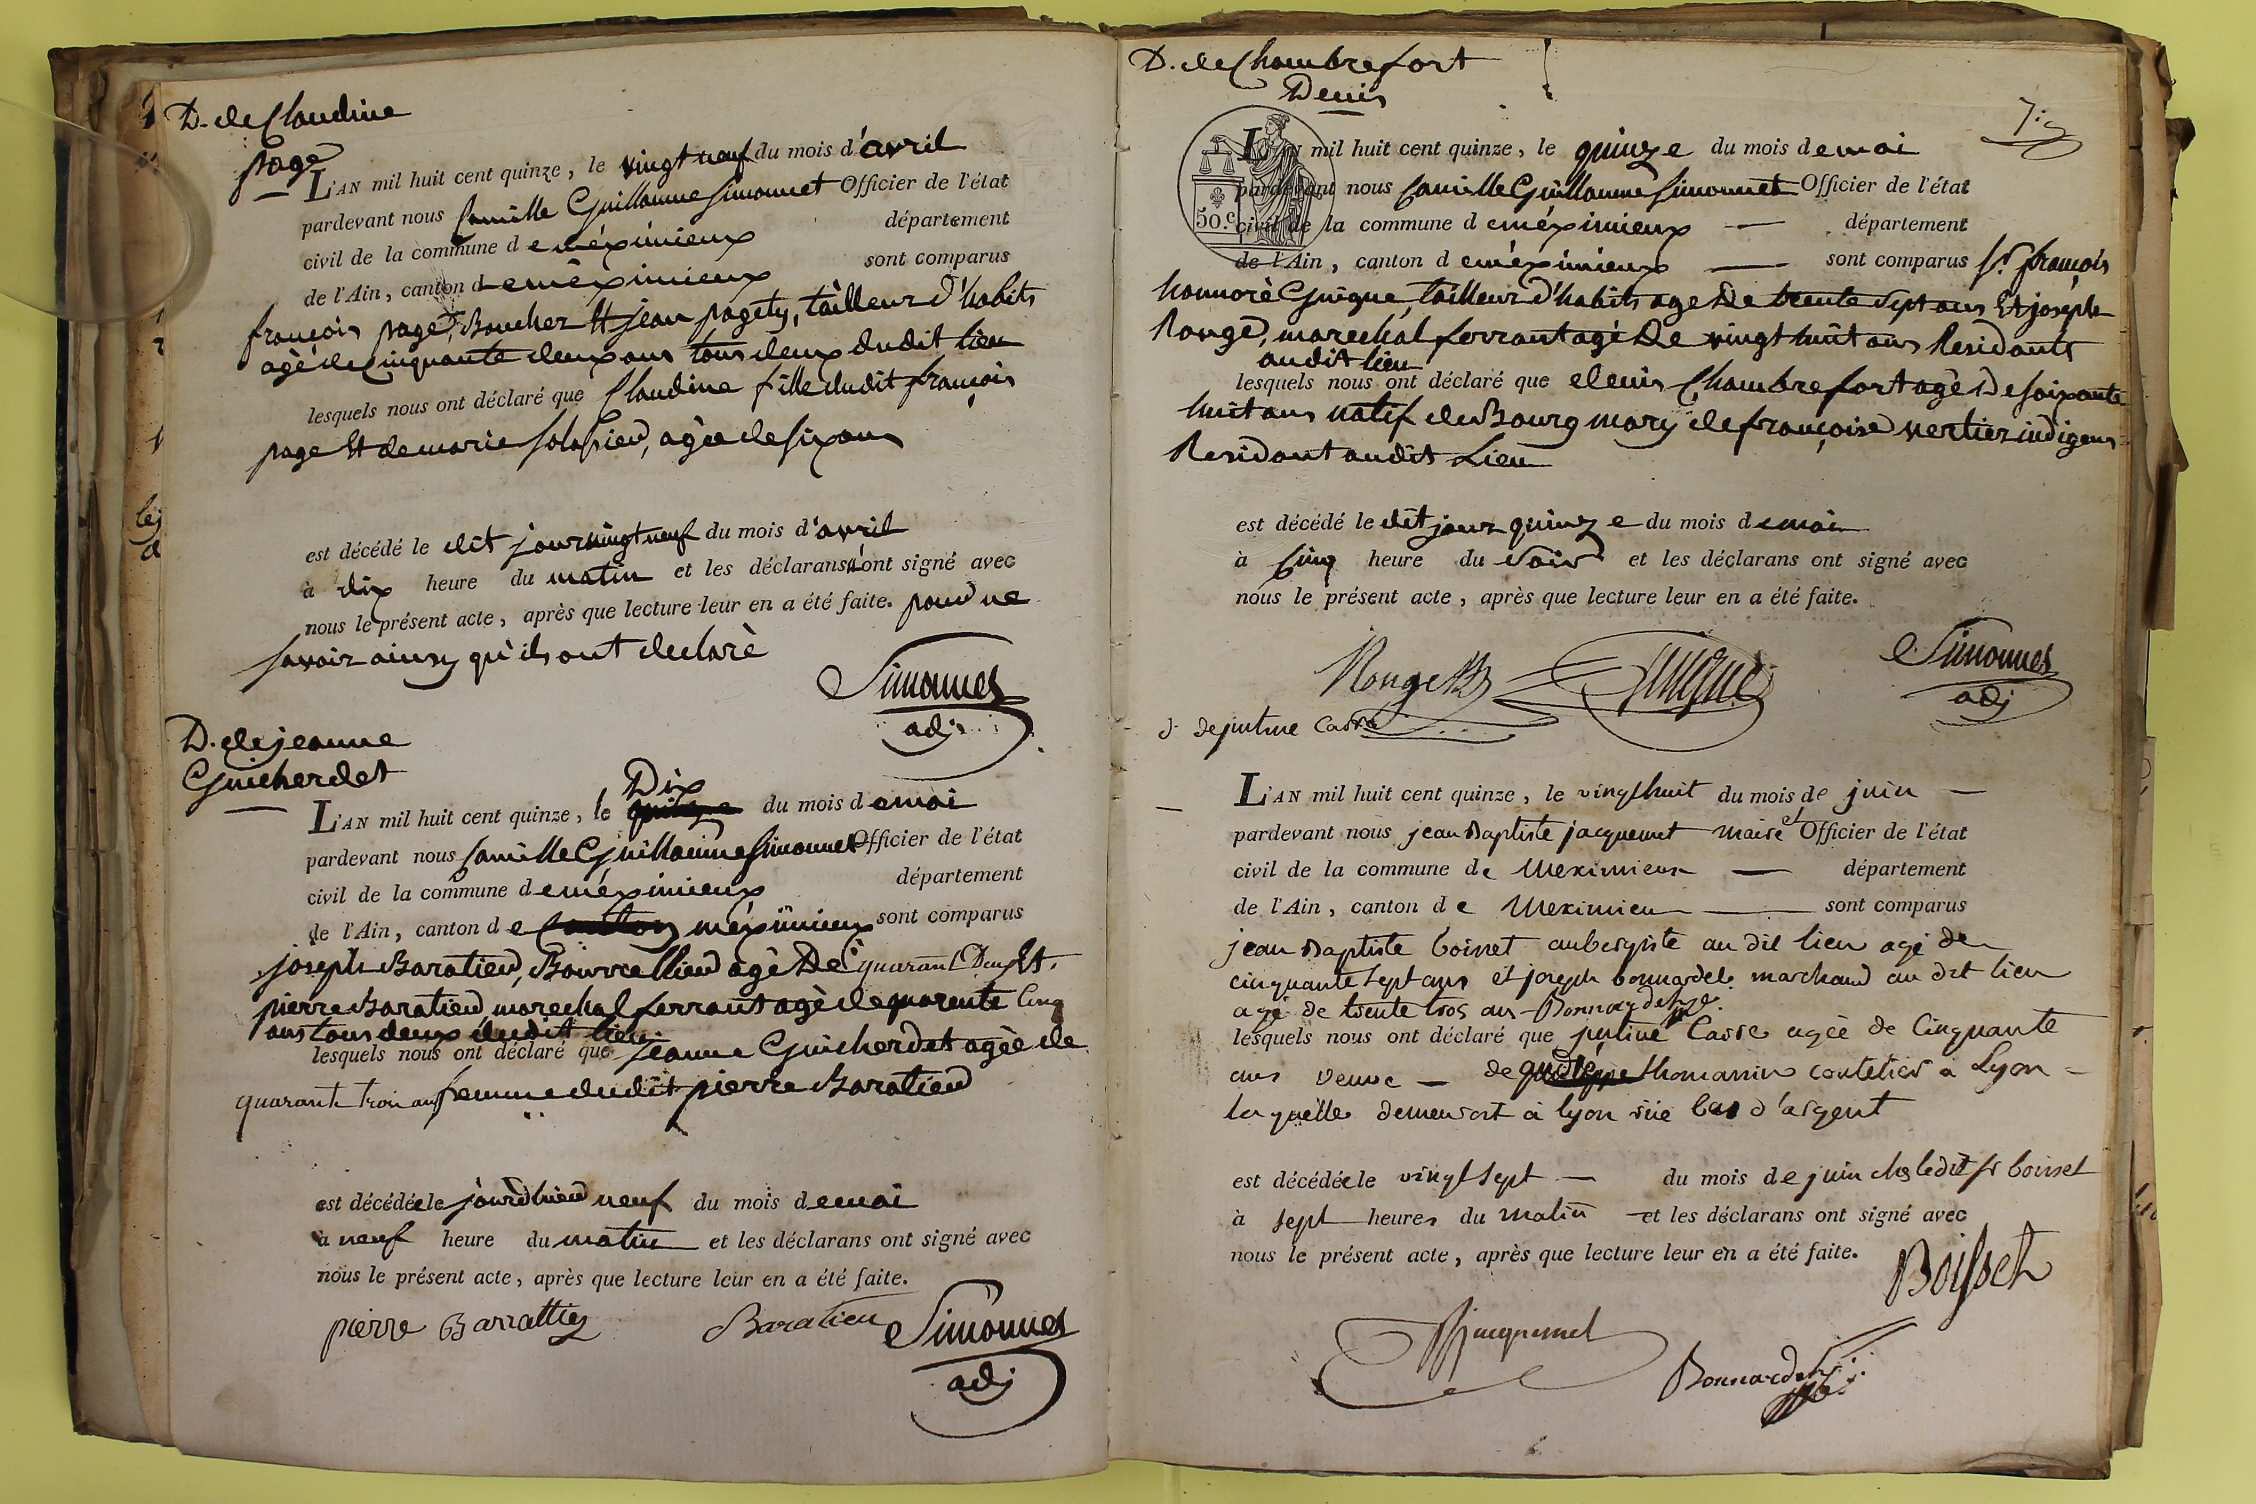 D. de Claudine
page
L'AN mil huit cent quinze, le vingt neuf du mois d'avril
pardevant nous Camille Guillaume Simonnet Officier de l'état
civil de la commune de méximieux département
de l'Ain, canton de méximieux sont comparus
françois page, Boucher Et jean pagety, tailleur d'habits
agé de cinquante deux ans tous deux dudit lieu
lesquels nous ont déclaré que Claudine fille dudit françois
page Et de marie, agée de six ans
est décédé le dit jour vingt neuf du mois d'avril
à dix heure du matin et les déclarans n'ont signé avec
nous le présent acte, après que lecture leur en a été faite. pour ne
savoir ainsy qu'ils ont declarè
Simonnet
adj
D. de jeanne
Guicherdet
L'AN mil huit cent quinze, le Dix du mois de mai
pardevant nous Camille Guillaume Simonnet Officier de l'état
civil de la commune de méximieux département
de l'Ain, canton de méximieux sont comparus
joseph Baratier, Bourrellier agè De quarant Deux Et
pierre Baratier marechal ferrant agè de quarente Cinq
ans tous deux dudit lieu
lesquels nous ont déclaré que jeanne Guicherdet agèe de
quarante trois ans femme dudit pierre Baratier
est décédée le jour d'hier neuf du mois de mai
à neuf heure du matin et les déclarans ont signé avec
nous le présent acte, après que lecture leur en a été faite.
pierre Barattier Baratier Simonnet
adj
D. de Chambrefort
Denis
7
50.c
L'AN mil huit cent quinze, le quinze du mois de mai
pardevant nous Camille Guillaume Simonnet Officier de l'état
civil de la commune de méximieux département
de l'Ain, canton de méximieux sont comparus Sr françois
honnorè Guigue, tailleur d'habits age De trente Sept ans Et joseph
Rouge, marechal ferrant agè De vingt huit ans Residants
audit lieu
lesquels nous ont déclaré que denis Chambrefort agè De soixante
huit ans natif de Bourg mary de françoise vertier indigens
Residant audit Lieu
est décédé le dit jour quinze du mois de mai
à Cinq heure du Soir et les déclarans ont signé avec
nous le présent acte, après que lecture leur en a été faite.
Rouge Guigue Simonnet
adj
d. de justine Casse
L'AN mil huit cent quinze, le vingt huit du mois de juin
pardevant nous jean Baptiste jacquemet maire et Officier de l'état
civil de la commune de Meximieux département
de l'Ain, canton de Meximieu sont comparus
jean Baptiste boisset aubergiste au dit lieu agé de
cinquante sept ans et joseph bonnardel marchand au dit lieu
agé de trente trois ans Bonnardel
lesquels nous ont déclaré que justine Casse agée de Cinquante
ans veuve de thomassin coutelier a Lyon
laquelle demeurant à lyon rüe bas d'argent
est décédée le vingt sept du mois de juin chez le dit sr boisset
à sept heures du matin et les déclarans ont signé avec
nous le présent acte, après que lecture leur en a été faite.
Boisset
Jacquemet
Bonnardel